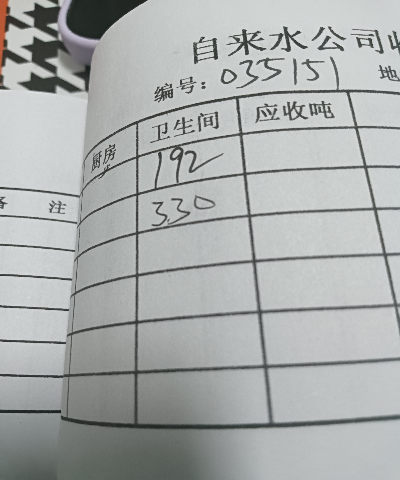 自来水公司收
编号: 035151 地
厨房 卫生间 应收吨
192
330
备 注